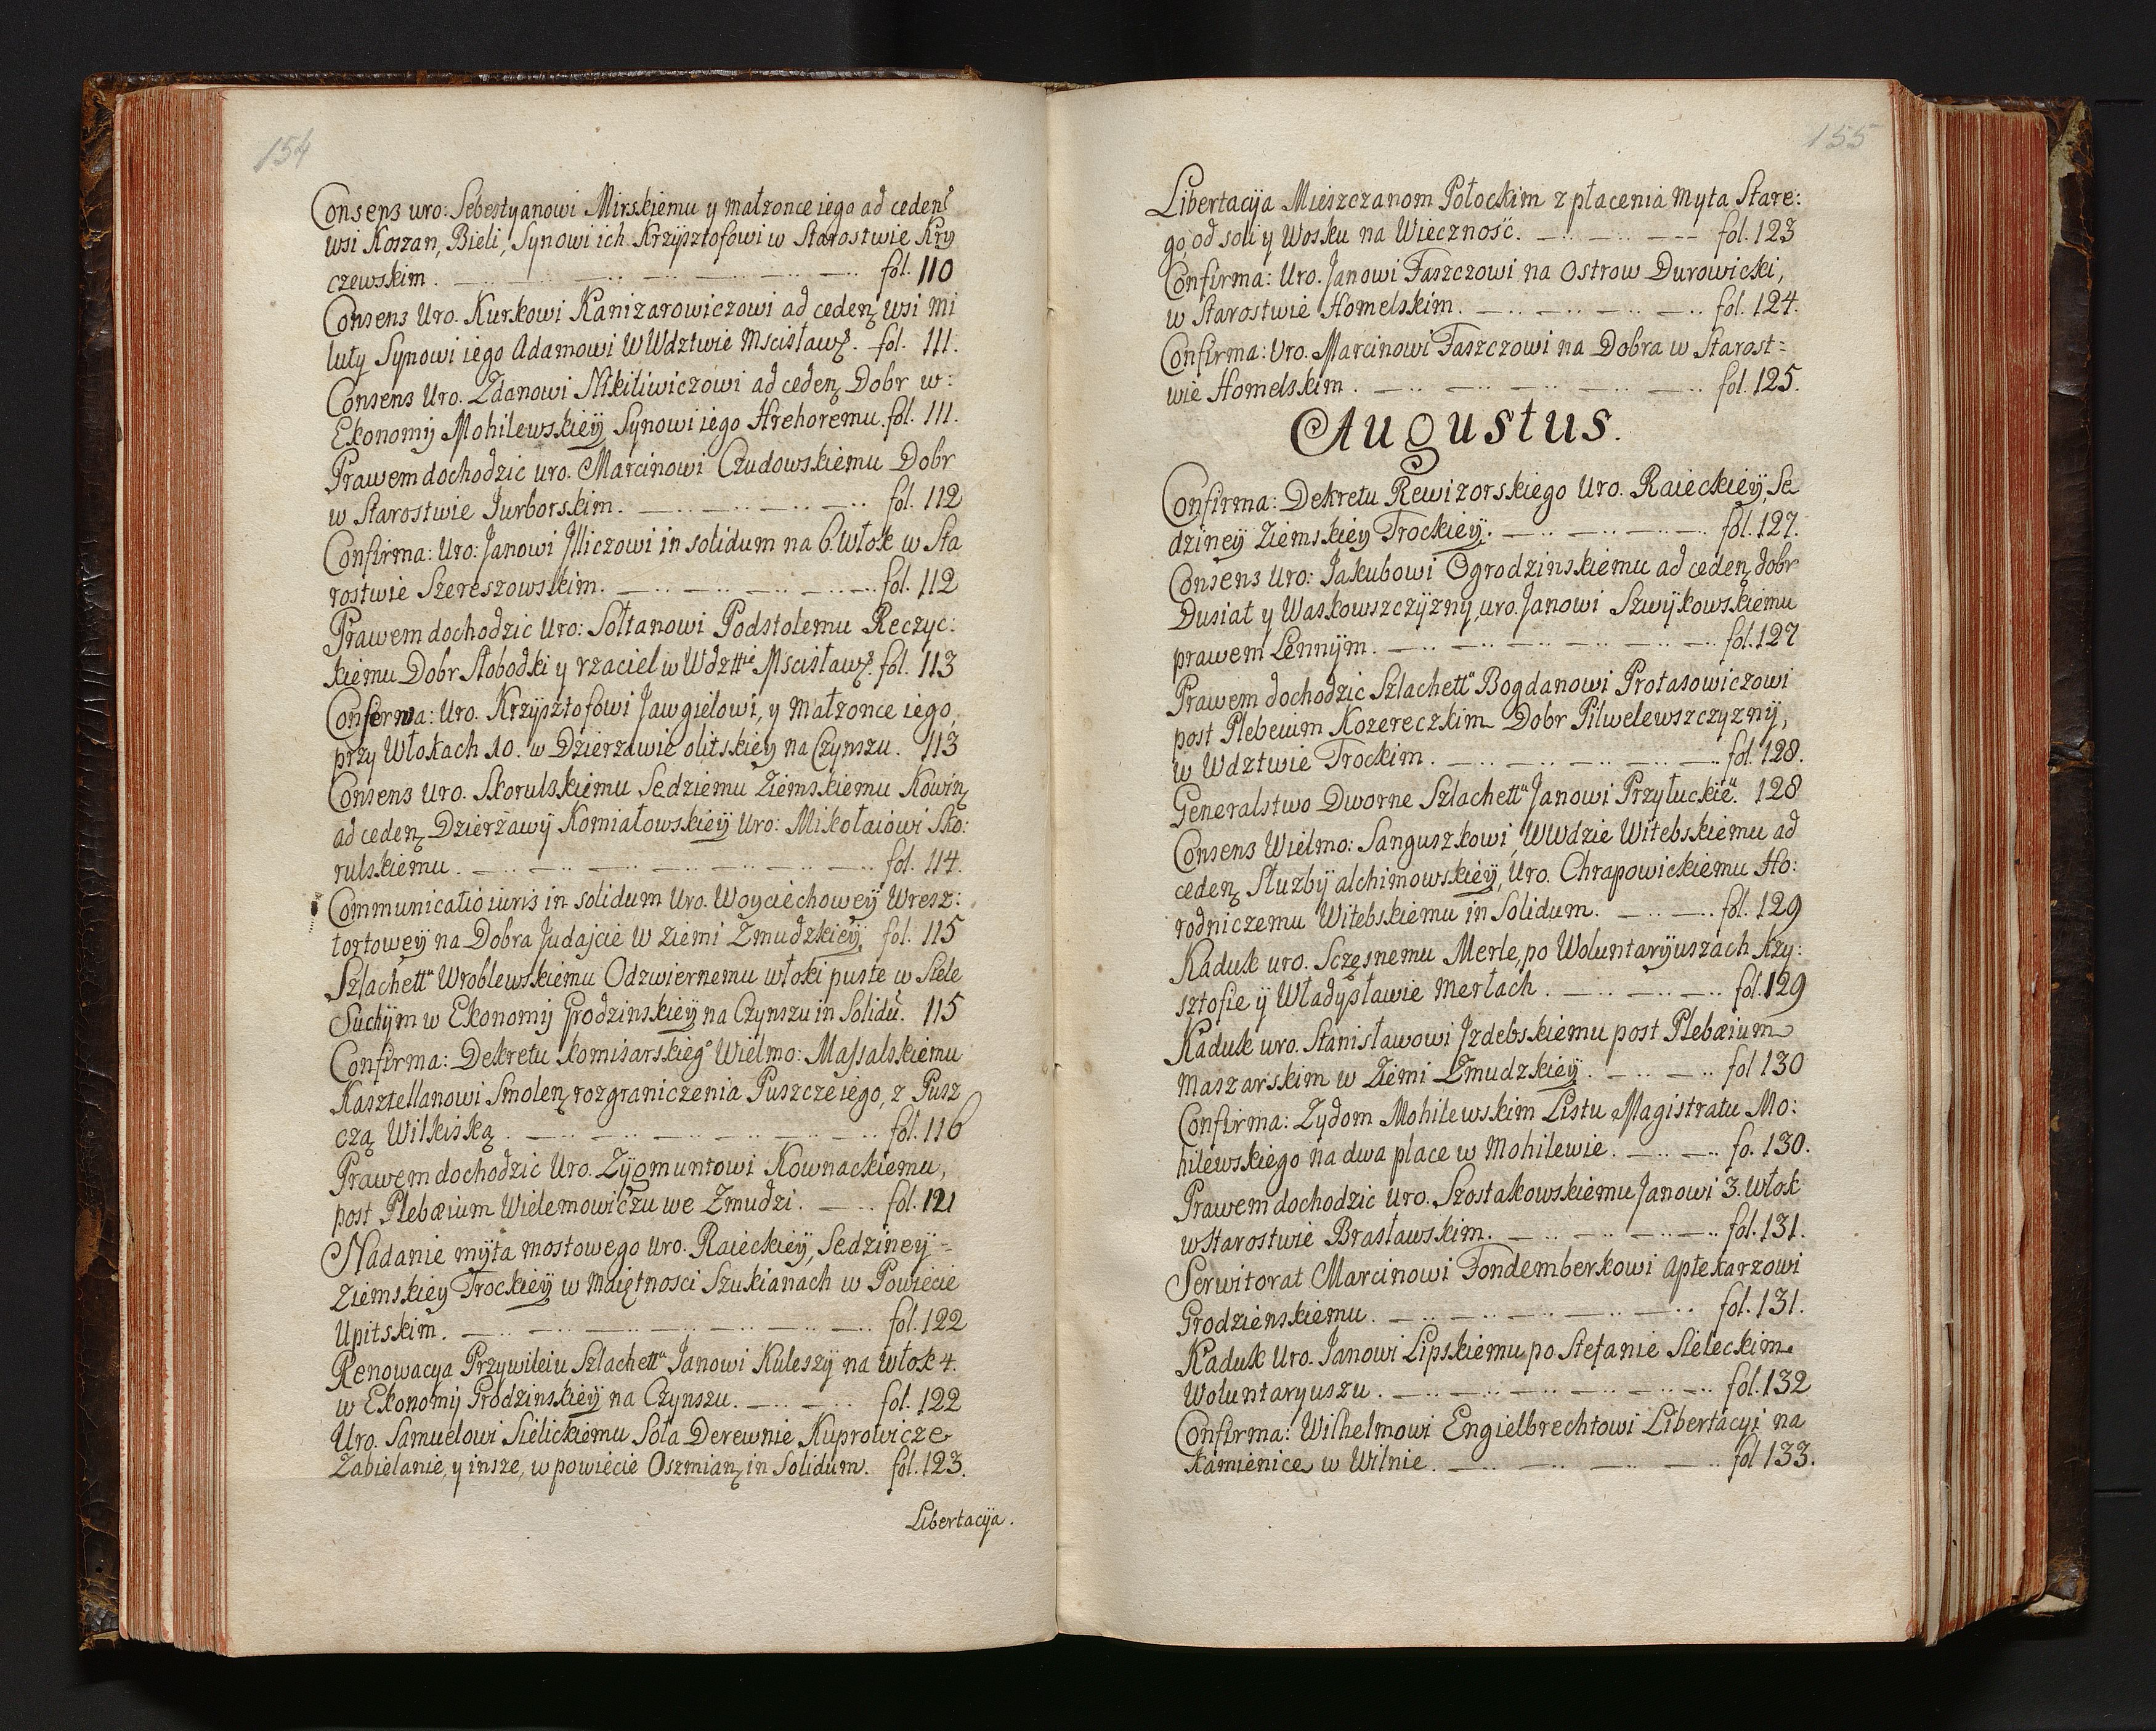 154
Consens uro: Sebestyanowi Mirskiemu y małzonce iego ad ceden
wsi Koszan, Bieli, Synowi ich Krzysztofowi w Starostwie Kry
czewskim. fol. 110
Consens Uro. Kurkowi Kanizarowiczowi ad ceden wsi Mi
luty Synowi iego Adamowi w Wdztwie Mscisław. fol. 111.
Consens Uro. Zdanowi Nikiliwiczowi ad ceden Dobr w:
Ekonomij Mohilewskieÿ Synowi iego Hrehoremu. fol. 111.
Prawem dochodzic uro. Marcinowi Czudowskiemu Dobr
w Starostwie Jurborskim. fol. 112
Confirma: Uro: Janowi Jlliczowi in solidum na 6. włok w Sta
rostwie Szereszowskim. fol. 112
Prawem dochodzic Uro: Sołtanowi Podstolemu Reczyc:
kiemu Dobr Słobodki y rzaciel w Wdzttie Mscisław. fol. 113
Conferma: Uro. Krzysztofowi Jawgielowi, y Małzonce iego,
przy Włokach 10. w Dzierzawie olitskiey na Czynszu. 113
Consens Uro. Skorulskiemu Sedziemu Ziemskiemu Kowin
ad ceden Dzierżawÿ Komiałowskieÿ Uro: Mikołaiowi Sko:
rulskiemu. fol. 114.
Communicatio iuris in solidum Uro. Woyciechoweÿ Wresz:
tortoweÿ na Dobra Judajcie w ziemi Zmudzkieÿ. fol. 115
Szlachett" Wroblewskiemu Odzwiernemu włoki puste w Siele
Suchÿm w Ekonomij Grodzinskieÿ na Czynszu in Solidū. 115
Confirma: Dekretu komisarskieg° Wielmo: Massalskiemu
Kasztellanowi Smolen rozgraniczenia Puszcze iego, z Pusz
czą Wilkiską. fol. 116
Prawem dochodzic Uro. Zÿgmuntowi Kownackiemu,
post Plebæium Wielemowiczu we Zmudzi. fol. 121
Nadanie mÿta mostowego uro. Raieckieÿ, Sedzineÿ =
Ziemskieÿ Trockieÿ w Maiętnosci Szukianach w Powiecie
Upitskim. fol. 122
Renowacya Przywileiu Szlachett" Janowi Kuleszÿ na włok 4.
w Ekonomij Grodzinskieÿ na Czynszu. fol. 122
Uro. Samuelowi Sielickiemu Soła Derewnie Kuprowicze
Zabielanie, y insze, w powiecie Oszmian in Solidum. fol. 123.
Libertacÿa.
155
Libertacÿa Mieszczanom Połockim z płacenia Myta Stare:
go, od soli y Wosku na Wieczność. fol. 123
Confirma: Uro. Janowi Faszczowi na Ostrow Durowicki,
w Starostwie Homelskim. fol. 124.
Confirma: Uro. Marcinowi Faszczowi na Dobra w Starost=
wie Homelskim. fol. 125.
Augustus.
Confirma: Dekretu Rewizorskiego Uro. Raieckieÿ Se
dzineÿ Ziemskieÿ Trockieÿ. fol. 127.
Consens Uro: Jakubowi Ogrodzinskiemu ad ceden dobr
Dusiat y Waskowszczÿzny, uro. Janowi Szwÿkowskiemu
prawem Lennÿm. fol. 127
Prawem dochodzic Szlachett" Bogdanowi Protasowiczowi
post Plebeium Kozereczkim Dobr Pilwelewszczyznÿ,
w Wdztwie Trockim. fol. 128.
Generalstwo Dworne Szlachett" Janowi Przyłuckie". 128
Consens Wielmo: Sanguszkowi, WWdzie Witebskiemu ad
ceden Słuzbÿ alchimowskieÿ, Uro. Chrapowickiemu Ho:
rodniczemu Witebskiemu in Solidum. fol. 129
Kaduk uro. Sczęsnemu Merle, po Woluntarÿuszach Krzy:
sztofie ÿ Władysławie Merłach. fol. 129
Kaduk uro. Stanisławowi Jzdebskiemu post Plebæium
Maszarskim w Ziemi Zmudzkieÿ. fol 130
Confirma: Zydom Mohilewskim Listu Magistratu Mo:
hilewskiego na dwa place w Mohilewie. fo. 130.
Prawem dochodzic Uro. Szostakowskiemu Janowi 3. włok
w Starostwie Brasławskim. fol. 131.
Serwitorat Marcinowi Fondemberkowi Aptekarzowi
Grodzienskiemu. fol. 131.
Kaduk Uro. Janowi Lipskiemu po Stefanie Sieleckim
Woluntaryuszu. fol. 132
Confirma: Wilhelmowi Engielbrechtowi Libertacyi na
Kamienice w Wilnie. fol 133.